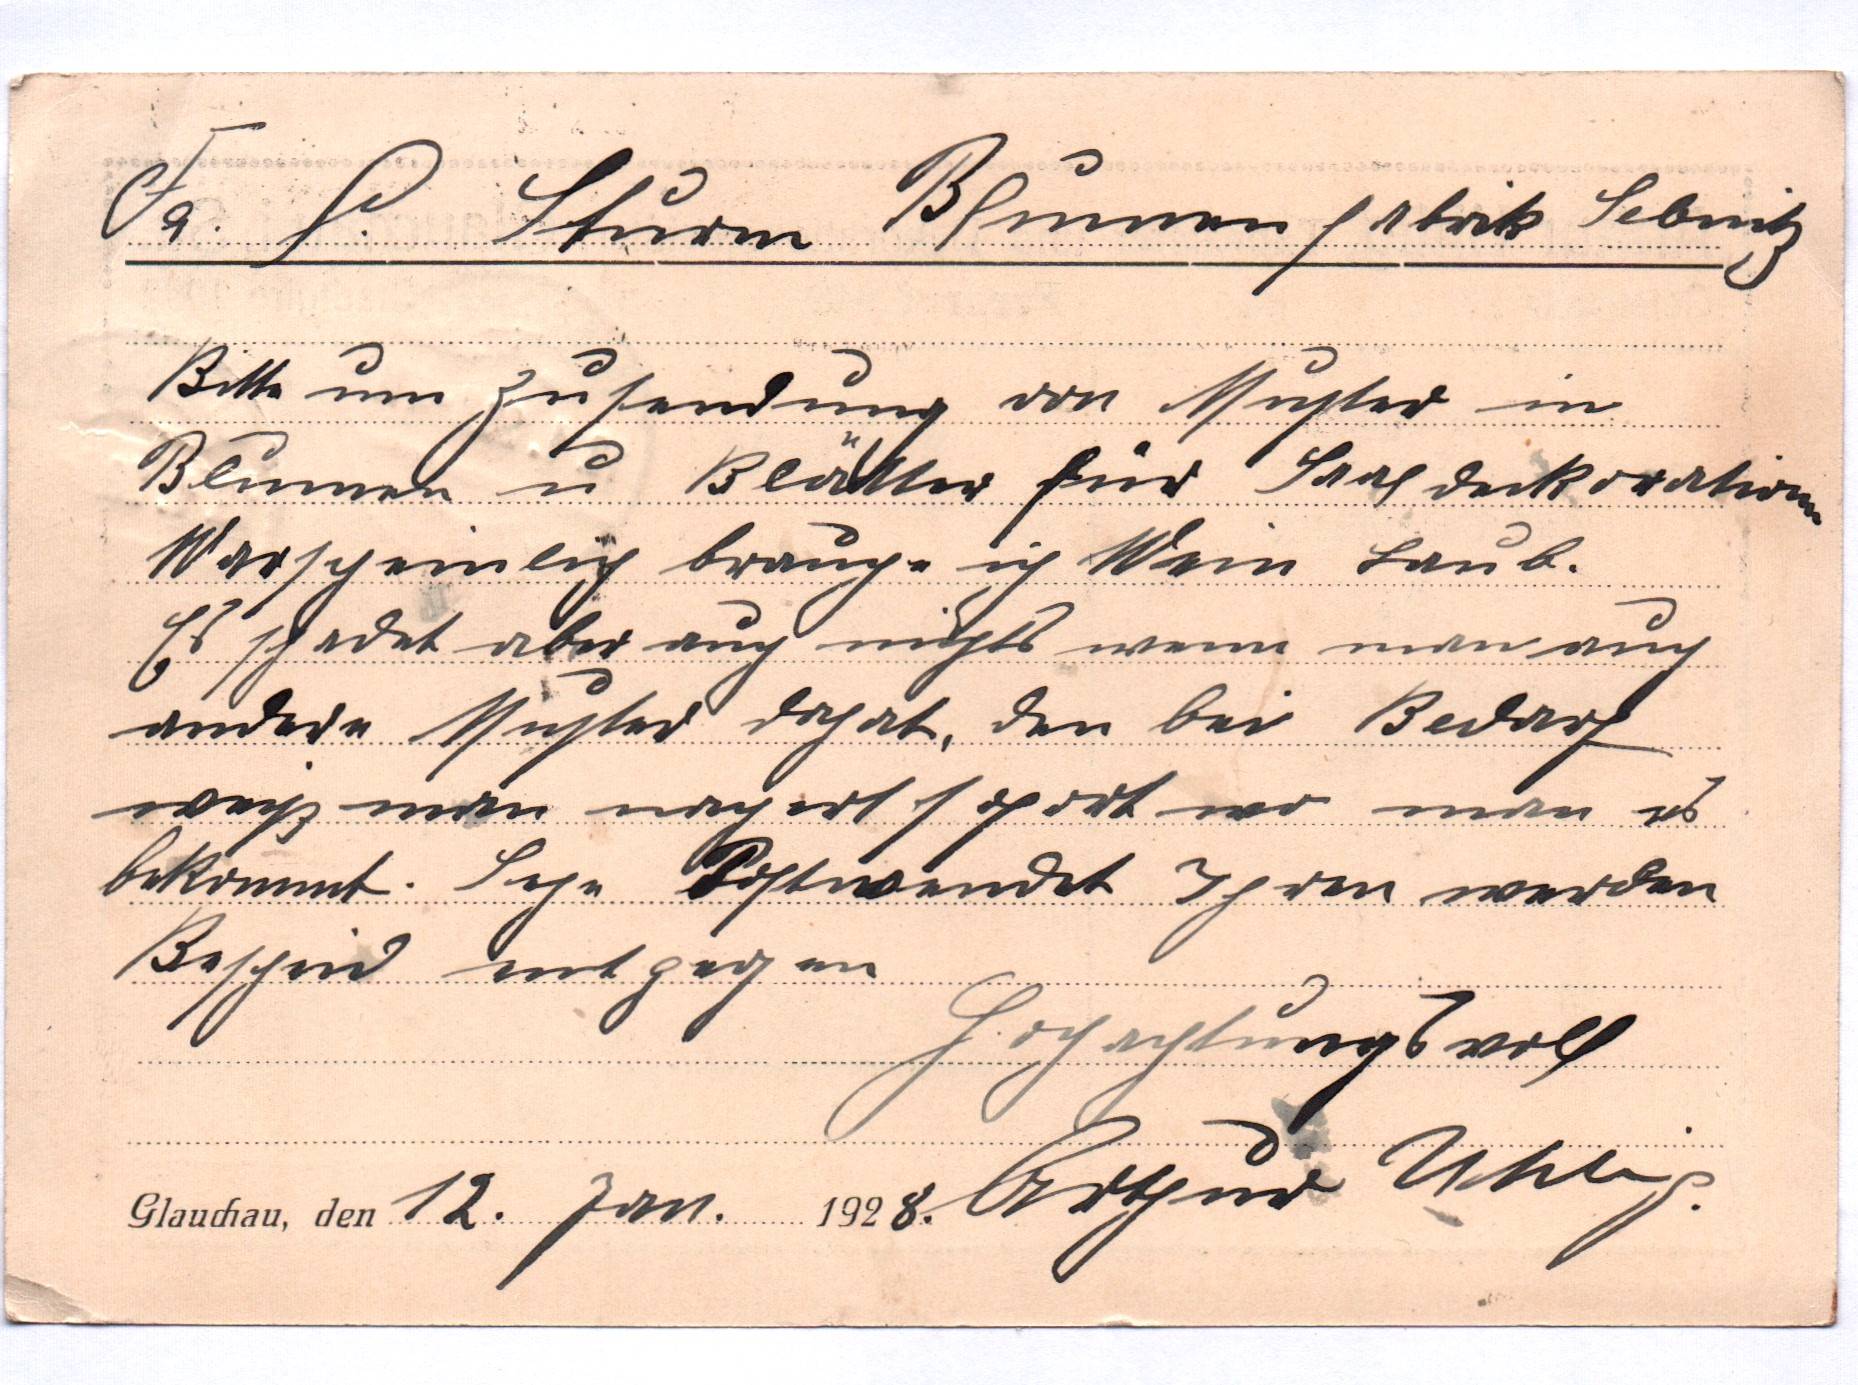 Fa. H. Sturm Blumenfabrik Sebnitz
Bitte um Zusendung von Muster in
Blumen u Blätter für Saaldeckoration
Warscheinlich brauche ich Wein Laub.
Es schadet aber auch nichts wenn man auch
andere Muster dahat, den bei Bedarf
weiß man nacher sofort wo man es
bekommt. Sehe Postwendet Ihren werden
Bescheid entgegen
Hochachtungsvoll
Glauchau, den 12. Jan. 1928. Arthur Uhlig.